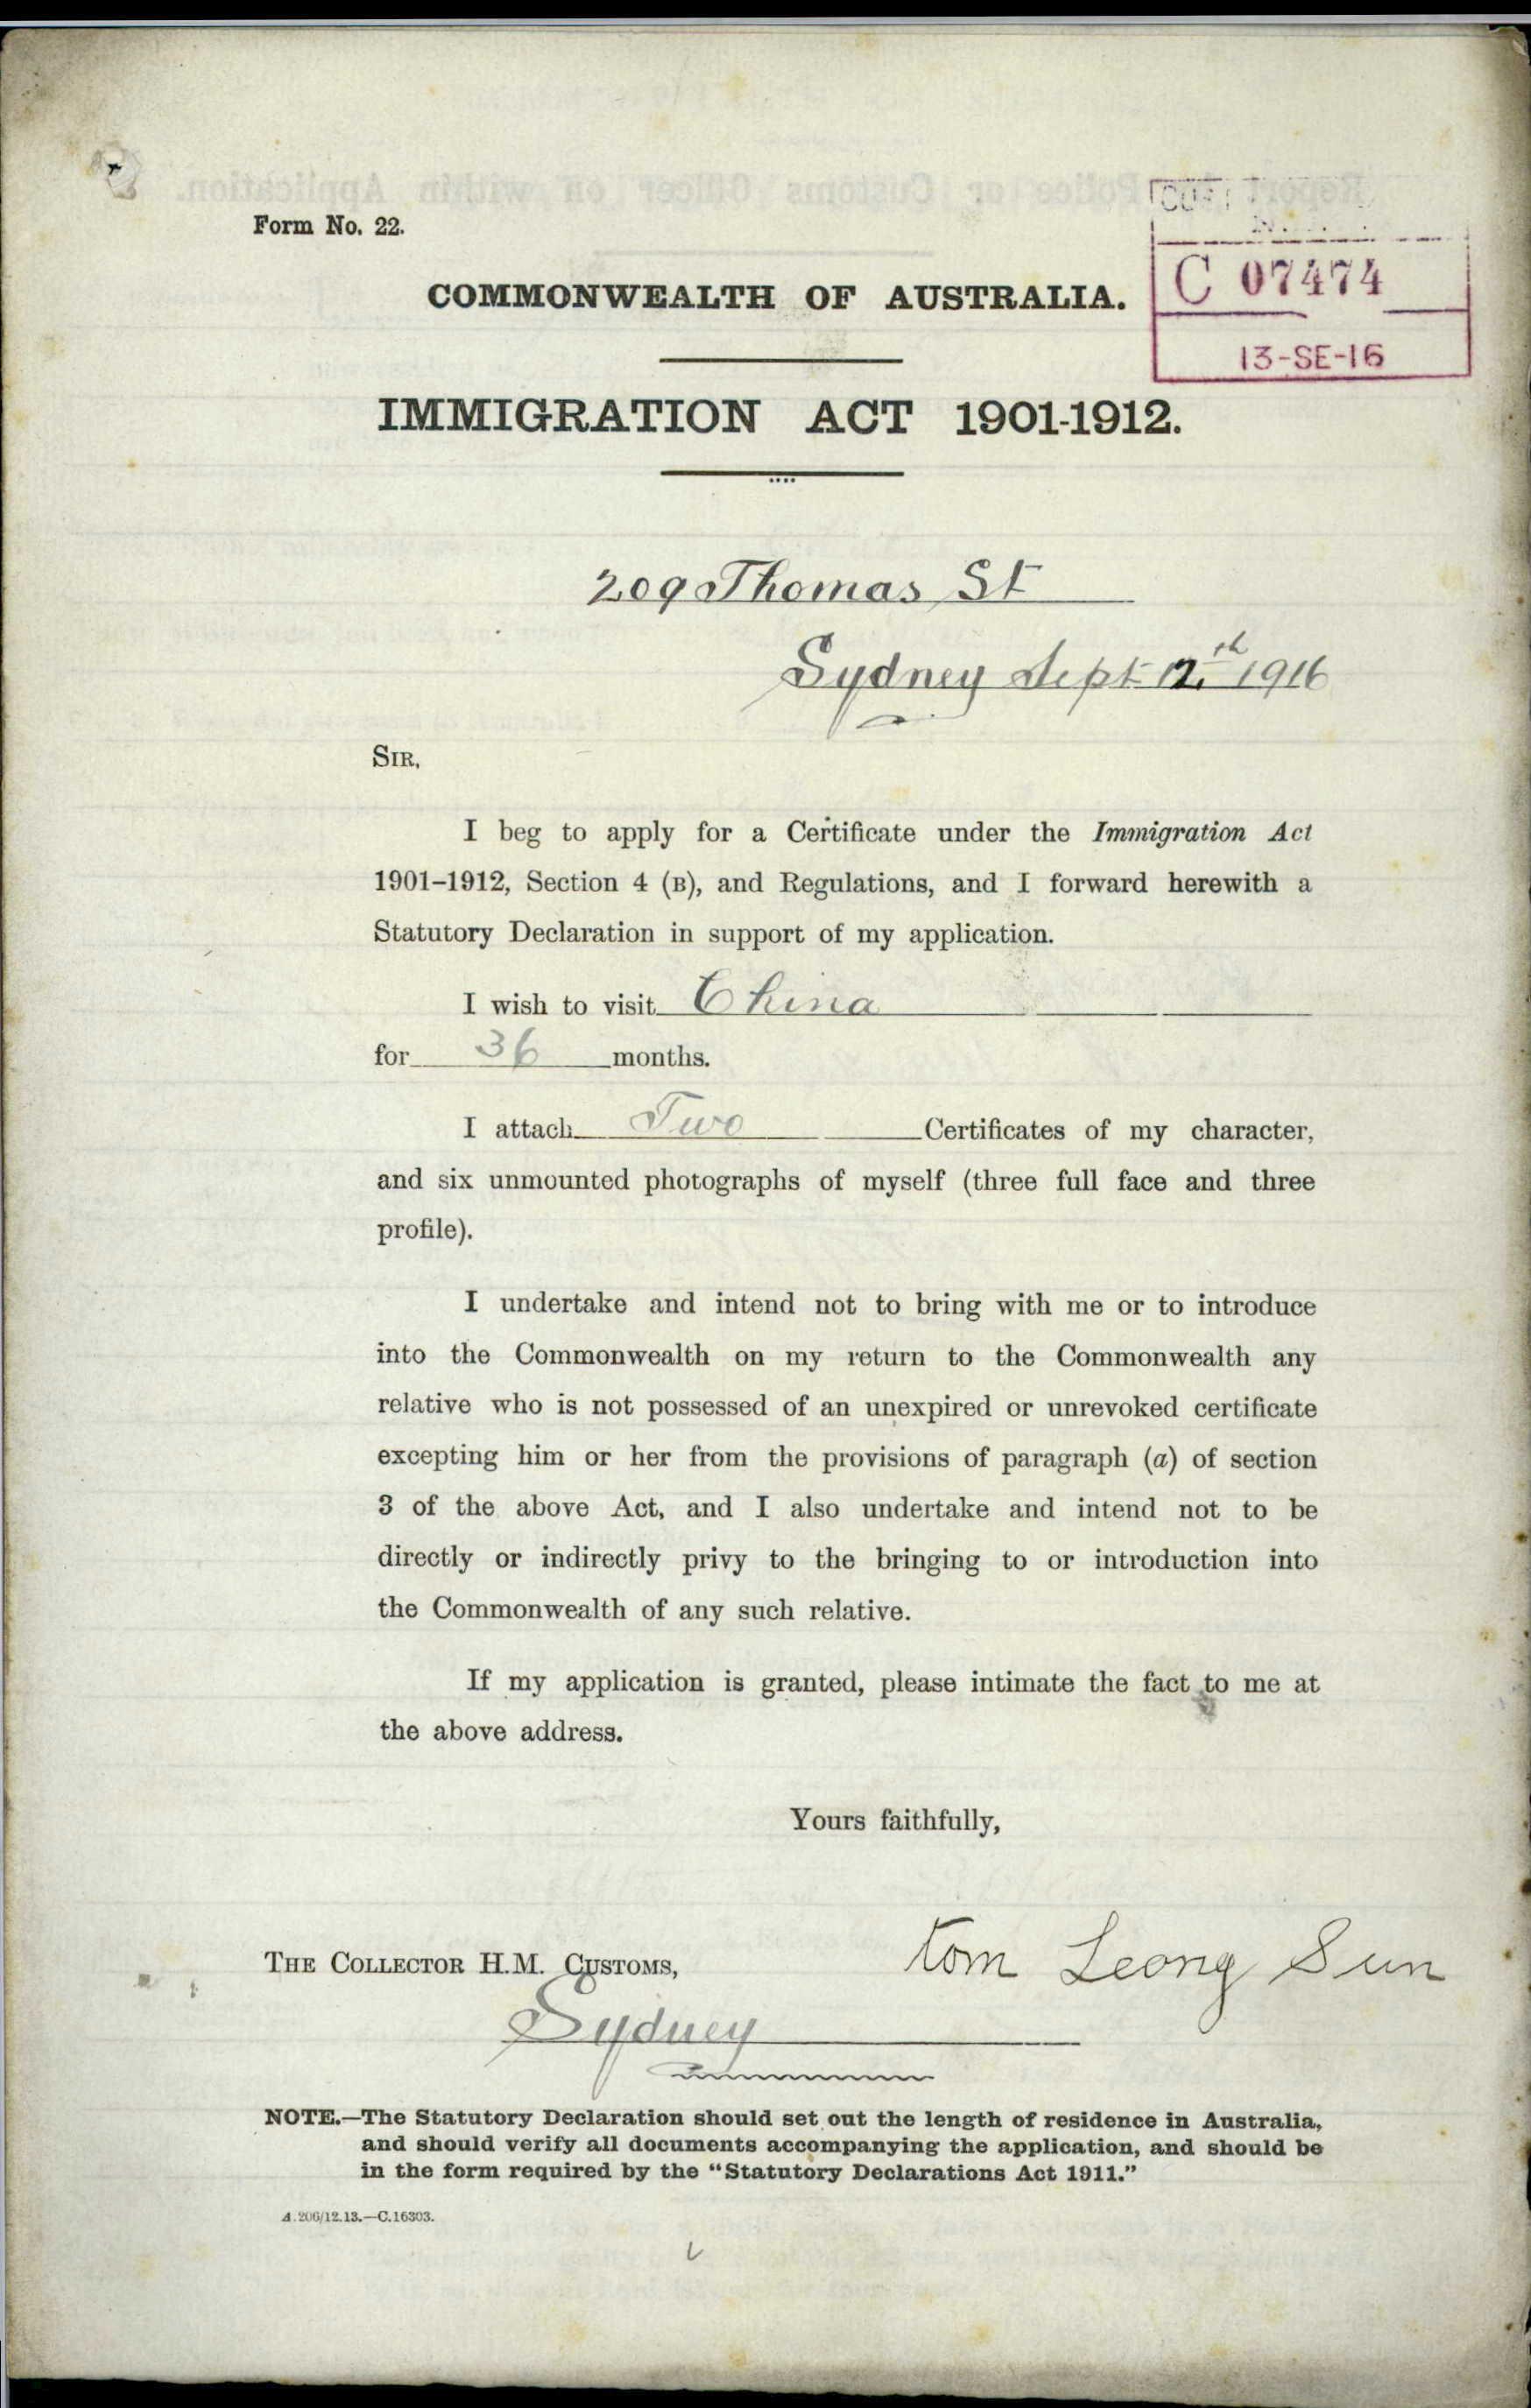 Report of Police or Customs Officer on within Application.
Form No. 22.
COMMONWEALTH OF AUSTRALIA.
C 07474
13-SE-16
IMMIGRATION ACT 1901-1912.
209 Thomas St
Sydney Sept 12th 1916
SIR,
I beg to apply for a Certificate under the Immigration Act
1901-1912, Section 4 (B), and Regulations, and I forward herewith a
Statutory Declaration in support of my application.
I wish to visit China
for 36 months.
I attach Two Certificates of my character,
and six unmounted photographs of myself (three full face and three
profile).
I undertake and intend not to bring with me or to introduce
into the Commonwealth on my return to the Commonwealth any
relative who is not possessed of an unexpired or unrevoked certificate
excepting him or her from the provisions of paragraph (a) of section
3 of the above Act, and I also undertake and intend not to be
directly or indirectly privy to the bringing to or introduction into
the Commonwealth of any such relative.
If my application is granted, please intimate the fact to me at
the above address.
Yours faithfully,
THE COLLECTOR H.M. CUSTOMS,
Tom Leong Sun
Sydney
NOTE.—The Statutory Declaration should set out the length of residence in Australia,
and should verify all documents accompanying the application, and should be
in the form required by the "Statutory Declarations Act 1911."
A.206/12.13.—C.16303.